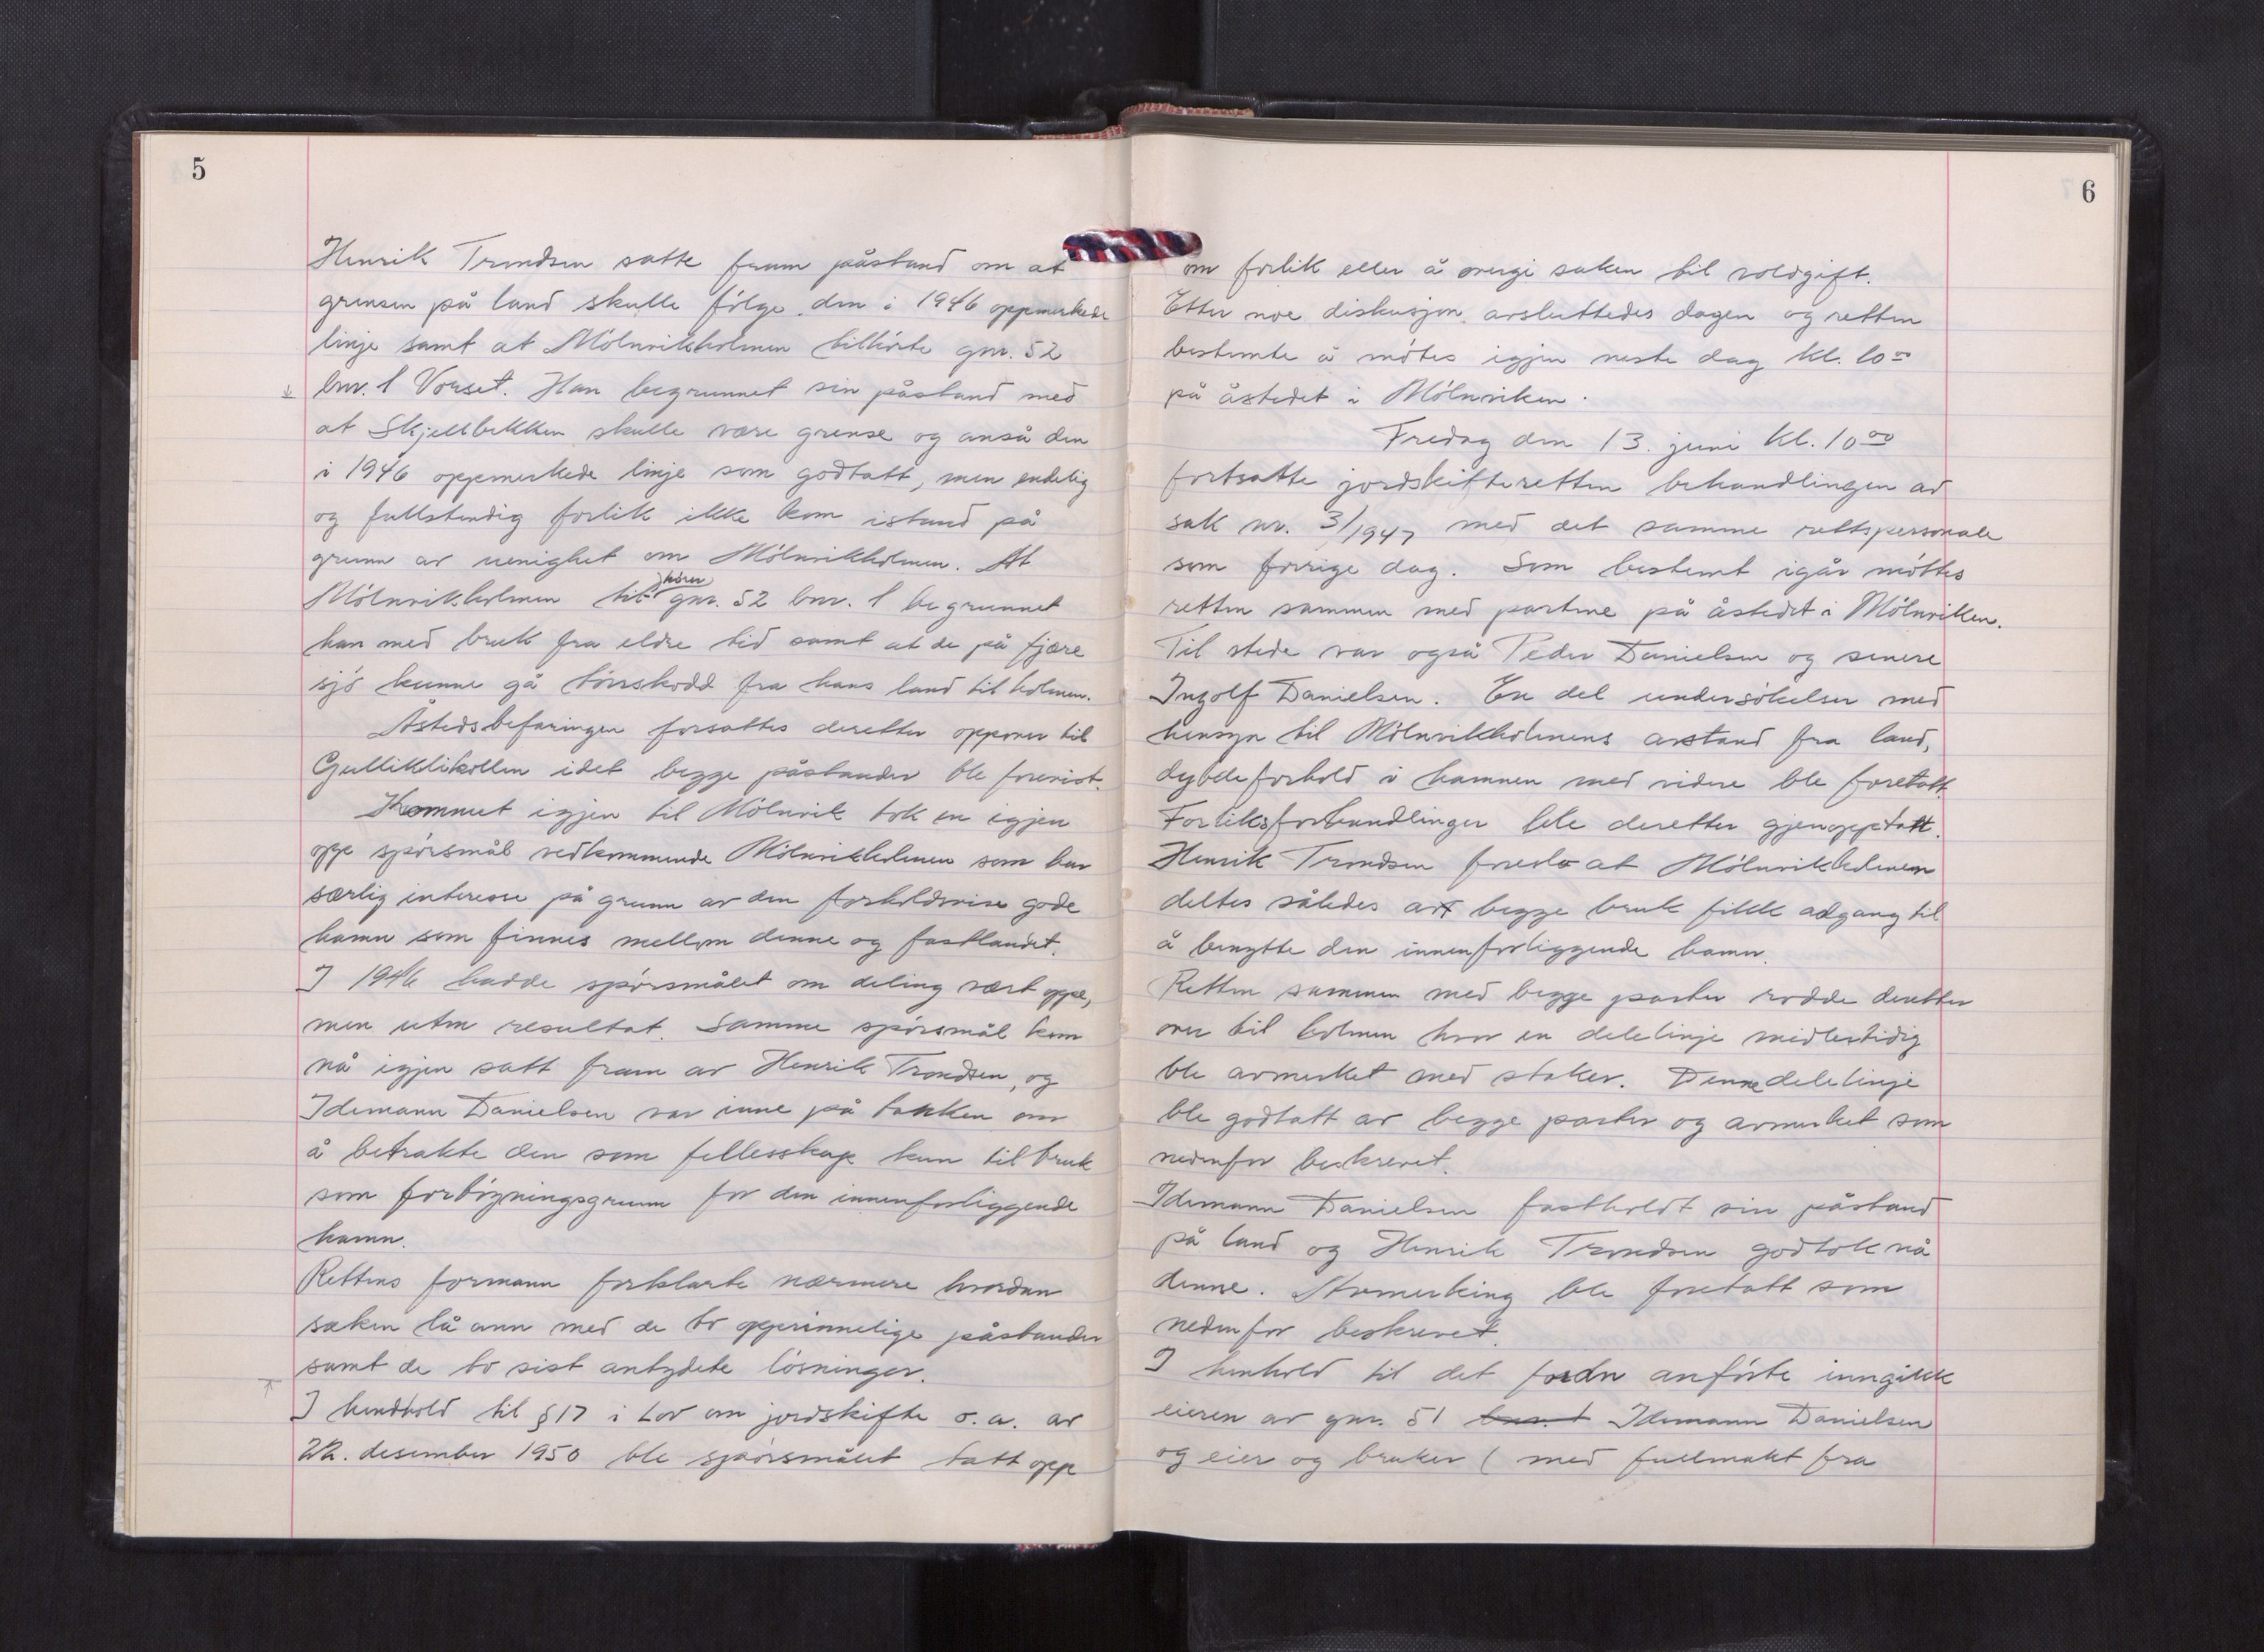 5
Henrik Trondsen satte fram påstand om at
grensen på land skulle følge den i 1946 oppmerkede
linje samt at Mölnvikholmen tilhörte gnr. 52
bnr. 1 Vorset. Han begrunnet sin påstand med
at Skjellbekken skulle være grense og anså den
i 1946 oppmerkede linje som godtatt, men endelig
og fullstendig forlik ikke kom istand på
grunn av uenighet om Mölnvikholmen. At
Mölnvikholmen til hörer gnr. 52 bnr. 1 begrunnet
han med bruk fra eldre tid samt at de på fjære
sjö kunne gå törrskodd fra hans land til holmen.
Åstedsbefaringen forsattes deretter oppover til
Gulliklikollen idet begge påstander ble forevist.
Kommet igjen til Mölnvik tok en igjen
opp spörsmål vedkommende Mölnvikholmen som har
særlig interesse på grunn av den forholdsvise gode
hamn som finnes mellom denne og fastlandet.
I 1946 hadde spörsmålet om deling vært oppe,
men uten resultat. Samme spörsmål kom
nå igjen satt fram av Henrik Trondsen, og
Idemann Danielsen var inne på tanken om
å betrakte den som fellesskap kun til bruk
som fortöyningsgrunn for den innenforliggende
hamn.
Rettens formann forklarte nærmere hvordan
saken lå ann med de to opprinnelige påstander
samt de to sist antydete lösninger.
I hendhold til § 17 i Lov om jordskifte o.a. av
22. desember 1950 ble spörsmålet tatt opp
6
om forlik eller å overgi saken til voldgift.
Etter noe diskusjon avsluttedes dagen og retten
bestemte å mötes igjen neste dag kl. 10 00
på åstedet i Mölnviken.
Fredag den 13. juni kl. 10 00
fortsatte jordskifteretten behandlingen av
sak nr. 3/1947 med det samme rettspersonale
som forrige dag. Som bestemt igår möttes
retten sammen med partene på åstedet i Mölnviken.
Til stede var også Peder Danielsen og senere
Ingolf Danielsen. En del undersökelser med
hensyn til Mölnvikholmens avstand fra land,
dybdeforhold i hamnen med videre ble foretatt.
Forliksforhandlinger ble deretter gjenopptatt.
Henrik Trondsen foreslo at Mölnvikholmen
deltes således at begge bruk fikk adgang til
å benytte den innenforliggende hamn.
Retten sammen med begge parter rodde deretter
over til holmen hvor en delelinje midlertidig
ble avmerket med staker. Denne delelinje
ble godtatt av begge parter og avmerket som
nedenfor beskrevet.
Idemann Danielsen fastholdt sin påstand
på land og Henrik Trondsen godtok nå
denne. Avmerking ble foretatt som
nedenfor beskrevet.
I henhold til det foran anförte inngikk
eieren av gnr. 51 bnr. 1 Idemann Danielsen
og eier og bruker ( med fullmakt fra